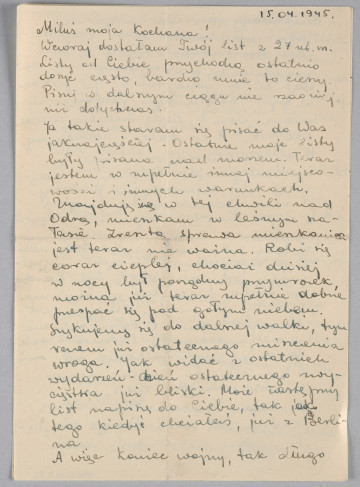 15.04.1945.
Miluś moja Kochana!
Wczoraj dostałam Twój list z 27 ub. m.
Listy od Ciebie przychodzą ostatnio
dosyć często, bardzo mnie to cieszy.
Pisuj w dalszym ciągu nie rzadziej
niż dotychczas.
Ja także staram się pisać do Was
jaknajczęściej. Ostatnie moje listy
były pisane nad morzem. Teraz
jestem w zupełnie innej miejsco-
wości i innych warunkach.
Znajduję się w tej chwili nad
Odrą, mieszkam w leśnym sza-
łasie. Zresztą sprawa mieszkania
jest teraz nie ważna. Robi się
coraz cieplej, chociaż dzisiej
w nocy był porządny przymrozek
można już teraz zupełnie dobrze
przespać się pod gołym niebem.
Szykujemy się do dalszej walki, tym
razem już ostatecznego zniszczenia
wroga. Jak widać z ostatnich
wydarzeń - dzień ostatecznego zwy-
cięstwa już bliski. Może następny
list napiszę do Ciebie, tak jak
tego kiedyś chciałaś, już z Berli-
na
A więc koniec wojny, tak długo